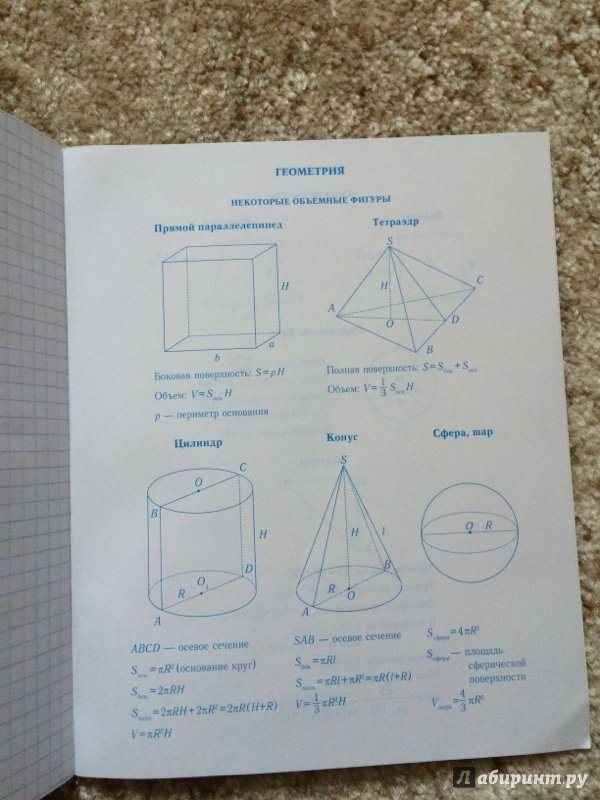 ГЕОМЕТРИЯ
НЕКОТОРЫЕ ОБЪЕМНЫЕ ФИГУРЫ
Прямой параллелепипед
H
a
b
Боковая поверхность: S=pH
Объем: V=Sосн.H
p — периметр основания
Тетраэдр
S
C
H
A
O
D
B
Полная поверхность: S=Sбок.+Sосн.
Объем: V=1/3 Sосн.H
Цилиндр
C
O
B
H
O₁
D
R
A
ABCD — осевое сечение
Sосн.=πR² (основание круг)
Sбок.=2πRH
Sполн.=2πRH+2πR²=2πR(H+R)
V=πR²H
Конус
S
H
l
B
R
O
A
SAB — осевое сечение
Sбок.=πRl
Sполн.=πRl+πR²=πR(l+R)
V=1/3 πR²H
Сфера, шар
O R
Sсферы=4πR²
Sсферы— площадь
сферической
поверхности
Vшара=4/3 πR³
Лабиринт.ру